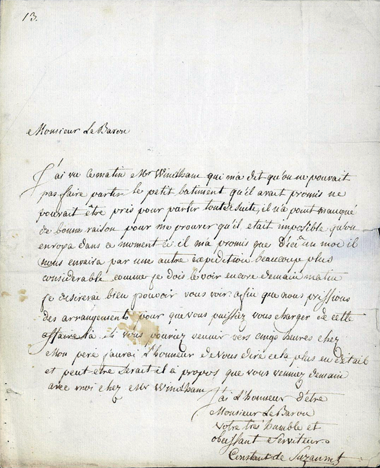 13.
Monsieur Le Baron
J'ai vu ce matin Mr Windham qui m'a dit qu'on ne pouvait
pas faire partir le petit batiment qu'il avait promis ne
pouvait être pris pour partir toute de suite, il n'a point manqué
de bonne raison pour me prouver qu'il était impossible qu'on
envoya dans ce moment ci. il m'a promis que d'ici un mois il
nous enverra par une autre expédition beaucoup plus
considérable comme je dois avoir encore demain matin
je desirerai bien pouvoir vous voir afin que nous pressions
des arrangements pour que vous puissiez vous charger de cette
affaire là. Si vous pouviez vennir vers cinq heures chez
Mon père j'aurai l'honneur de Vous dire cela plus en détail
et peut être serait il à propos que vous vennez demain
avec moi chez Mr Windham
J'ai l'honneur d'être
Monsieur Le Baron
votre très humble et
obeissant Serviteur
Constant de Suzannet